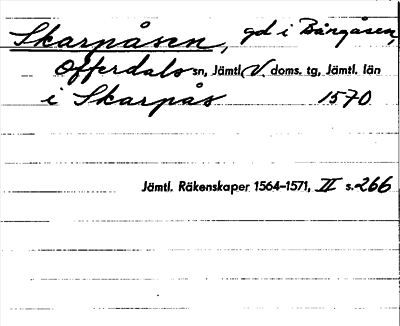 Skarpåsen, gd i Bångåsen,
Offerdals sn, Jämtl. V. doms. tg, Jämtl. län
i Skarpås 1570
Jämtl. Räkenskaper 1564–1571, II s. 266